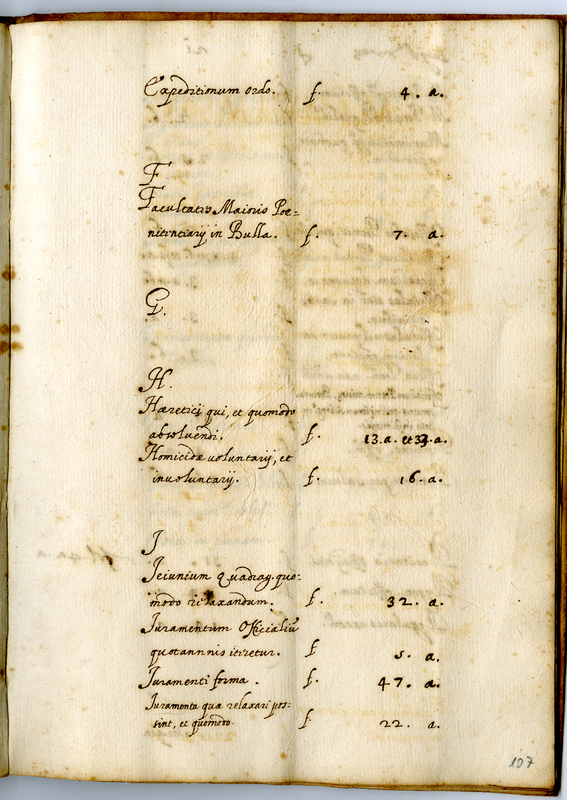 Expeditionum ordo. f. 4. a.
F
Facultates Maioris Poe=
nitentiarij in Bulla. f. 7. a.
G.
H.
Hæretici qui, et quomodo
absoluendi. f. 13. a. et a.
Homicidæ uoluntarij, et
inuoluntarij. f. 16. a.
J
Jeiunium Quadrag. quo=
modo relaxandum. f. 32. a.
Juramentum Officialiū
quotannnis iteretur. f 5. a.
Juramenti forma. f. 47. a.
Juramenta quæ relaxari pos=
sint, et quomodo. f. 22. a.
107